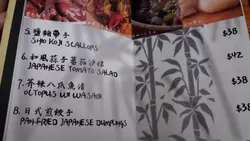 5. 鹽麴帶子 $38
SHIO KOJI SCALLOPS
6. 和風蒜子蕃茄沙律 $42
JAPANESE TOMATO SALAD
7. 芥辣八爪魚漬 $38
OCTOPUS W/ WASABI
8. 日式煎餃子 $38
PAN-FRIED JAPANESE DUMPLINGS